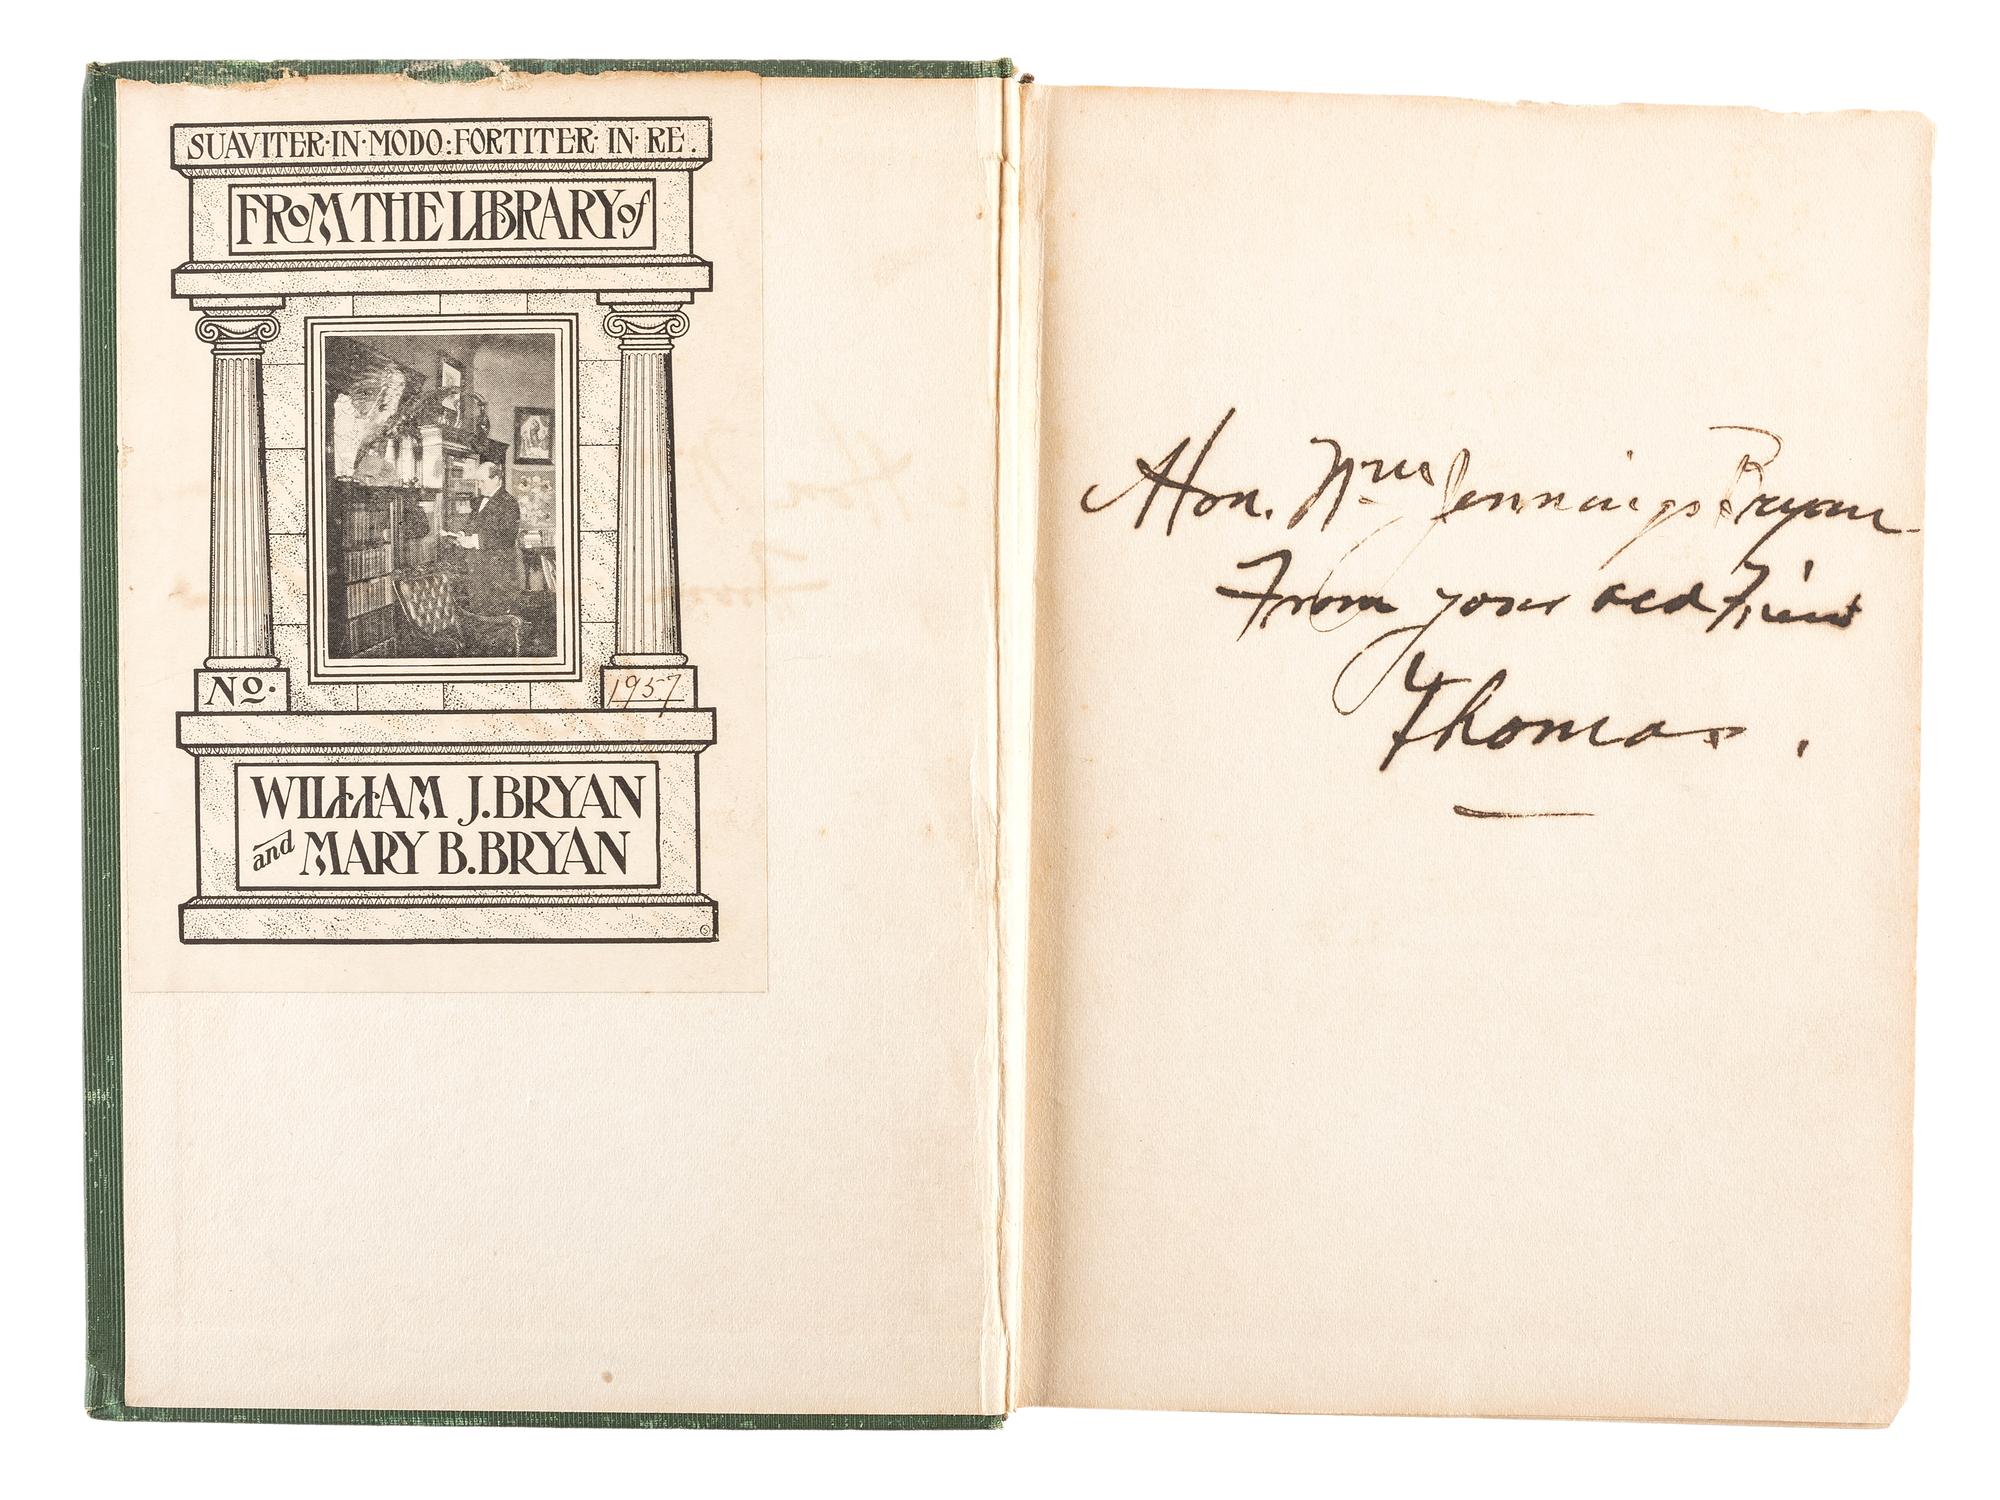 SUAVITER·IN·MODO:FORTITER·IN·RE.
FROM THE LIBRARY of
No. 1957
WILLIAM J. BRYAN
and MARY B. BRYAN
Hon. Wm Jennings Bryan
From your old Friend
Thomas.